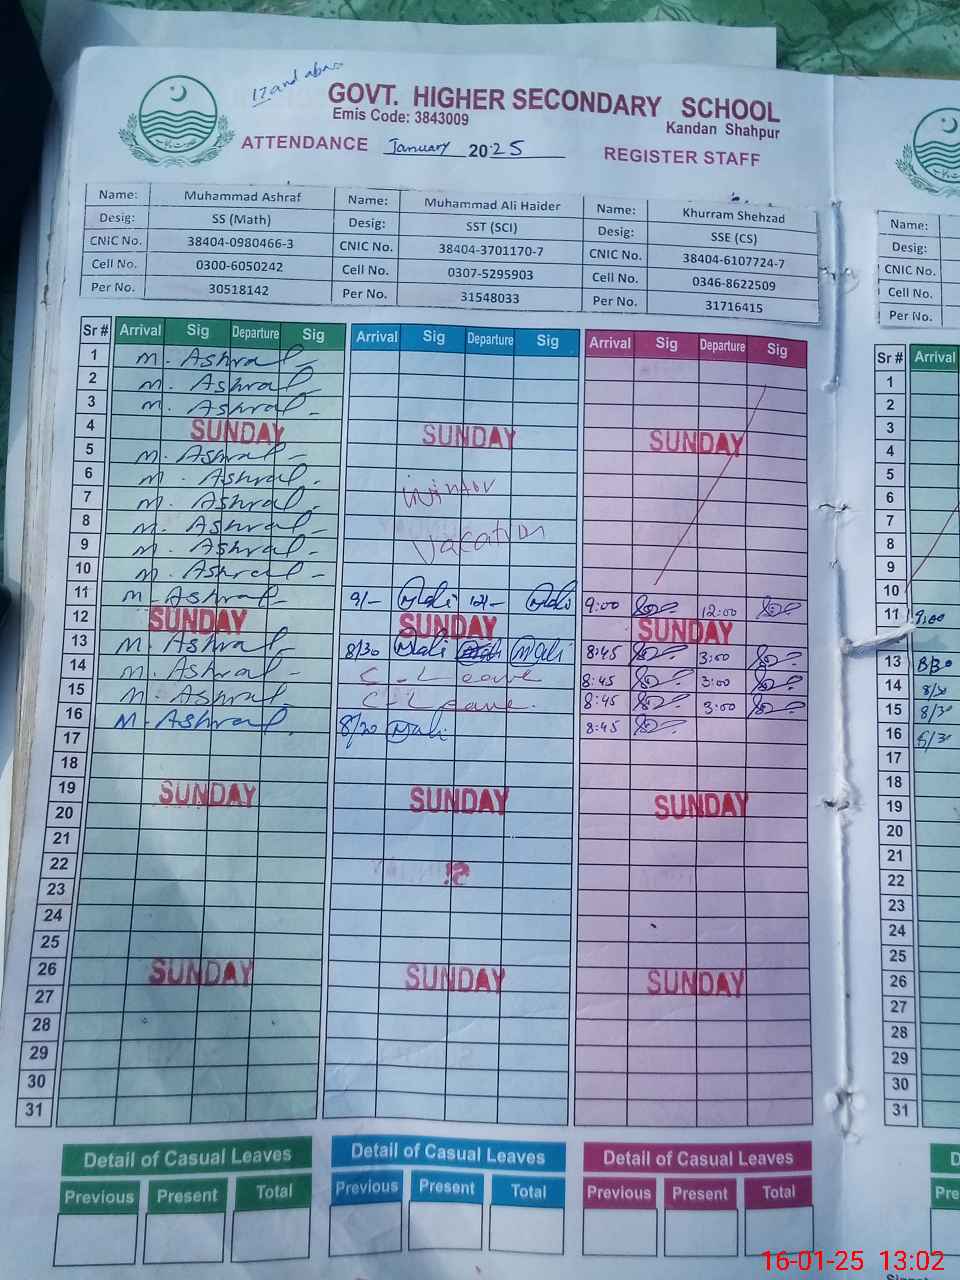 17 and
GOVT. HIGHER SECONDARY SCHOOL
Emis Code: 3843009
Kandan Shahpur
ATTENDANCE January 2025 REGISTER STAFF
Name: Muhammad Ashraf Name: Muhammad Ali Haider Name: Khurram Shehzad Name:
Desig: SS (Math) Desig: SST (SCI) Desig: SSE (CS) Desig:
CNIC No. 38404-0980466-3 CNIC No. 38404-3701170-7 CNIC No. 38404-6107724-7 CNIC No.
Cell No. 0300-6050242 Cell No. 0307-5295903 Cell No. 0346-8622509 Cell No.
Per No. 30518142 Per No. 31548033 Per No. 31716415 Per No.
Sr # Arrival Sig Departure Sig Arrival Sig Departure Sig Arrival Sig Departure Sig Sr # Arrival
1 M. Ashraf 1
2 M. Ashraf 2
3 M. Ashraf 3
4 SUNDAY SUNDAY SUNDAY 4
5 M. Ashraf 5
6 M. Ashraf winter 6
7 M. Ashraf 7
8 M. Ashraf Vacation 8
9 M. Ashraf 9
10 M. Ashraf 10
11 M. Ashraf 9/- Mali 12/- Mali 9:00 12:00 11 9:00
12 SUNDAY SUNDAY SUNDAY
13 M. Ashraf 8/30 Mali Mali 8:45 3:00 13 8/30
14 M. Ashraf C-Leave 8:45 3:00 14 8/30
15 M Ashraf C-Leave. 8:45 3:00 15 8/30
16 M. Ashraf 8/30 Mali 8:45 16 8/30
17 17
18 18
19 SUNDAY SUNDAY SUNDAY 19
20 20
21 21
22 22
23 23
24 24
25 25
26 SUNDAY SUNDAY SUNDAY 26
27 27
28 28
29 29
30 30
31 31
Detail of Casual Leaves Detail of Casual Leaves Detail of Casual Leaves
Previous Present Total Previous Present Total Previous Present Total
16-01-25 13:02